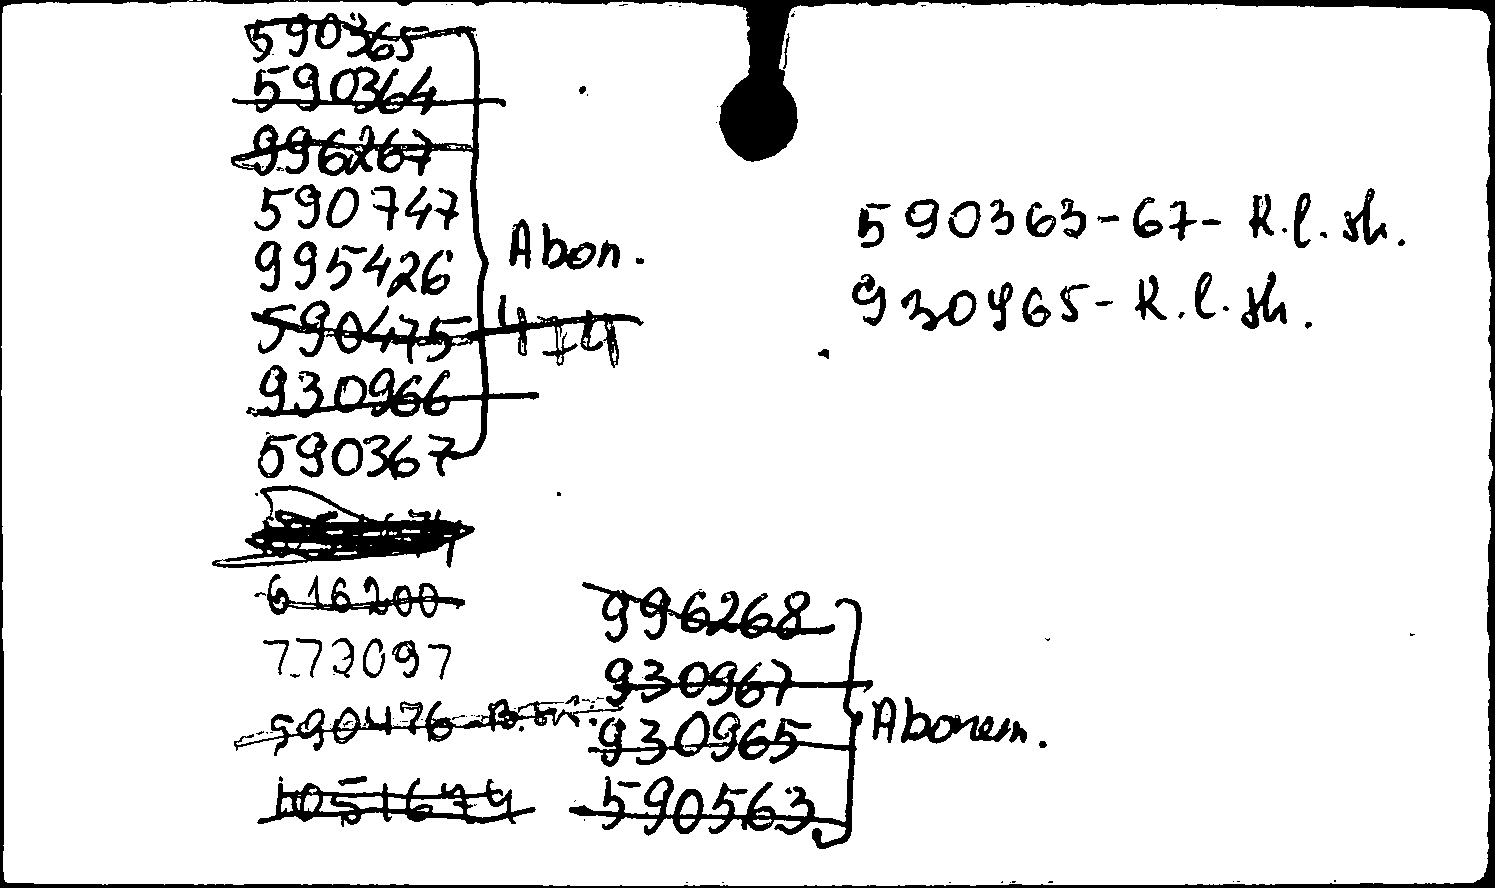 590365
590364
996267
590747
995426
Abon.
590475
4774
930966
590367
616200
773097
590476 - B. br.
1051674
996268
930967
930965
590563
Abonem.
590363-67- R.l. sk.
930965- R.l. sk.